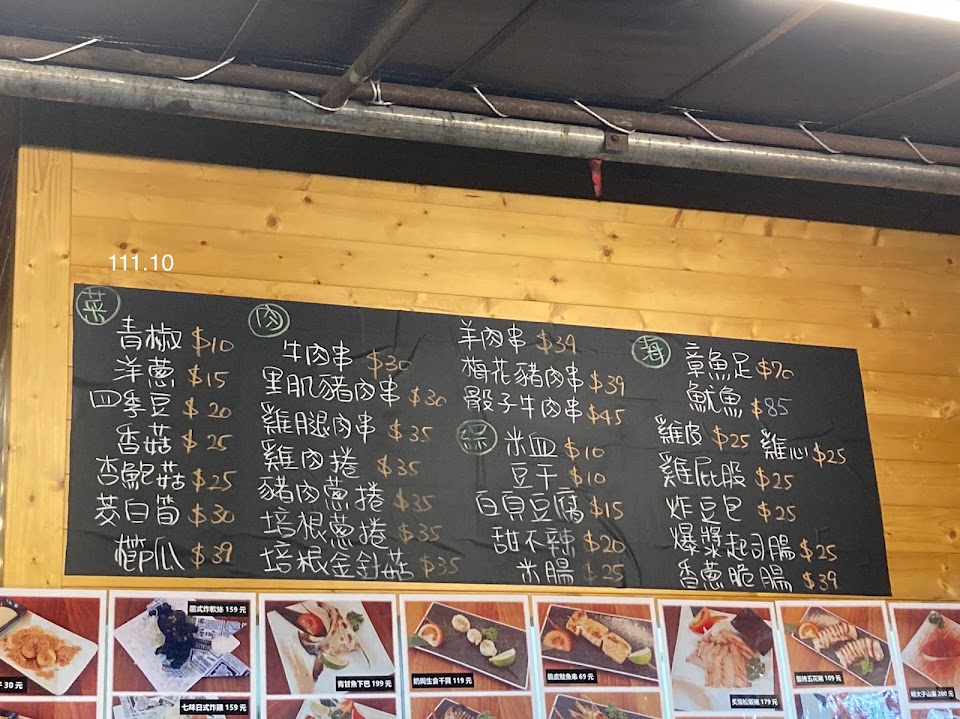 111.10
菜
青椒 $10
洋蔥 $15
四季豆 $20
香菇 $25
杏鮑菇 $25
茭白筍 $30
櫛瓜 $39
肉
牛肉串 $30
里肌豬肉串 $30
雞腿肉串 $35
雞肉捲 $35
豬肉蔥捲 $35
培根蔥捲 $35
培根金針菇 $35
羊肉串 $39
梅花豬肉串 $39
骰子牛肉串 $45
綜
米血 $10
豆干 $10
百頁豆腐 $15
甜不辣 $20
米腸 $25
章魚足 $70
魷魚 $85
雞皮 $25 雞心 $25
雞屁股 $25
炸豆包 $25
爆漿起司腸 $25
香蔥脆腸 $39
30 元
式炸軟絲 159 元
青甘魚下巴 199 元
生食干貝 119 元
鮭魚串 69 元
炙燒松阪豬 179 元
五花豬 109 元
明太子山藥 200 元
七味日式炸雞 159 元